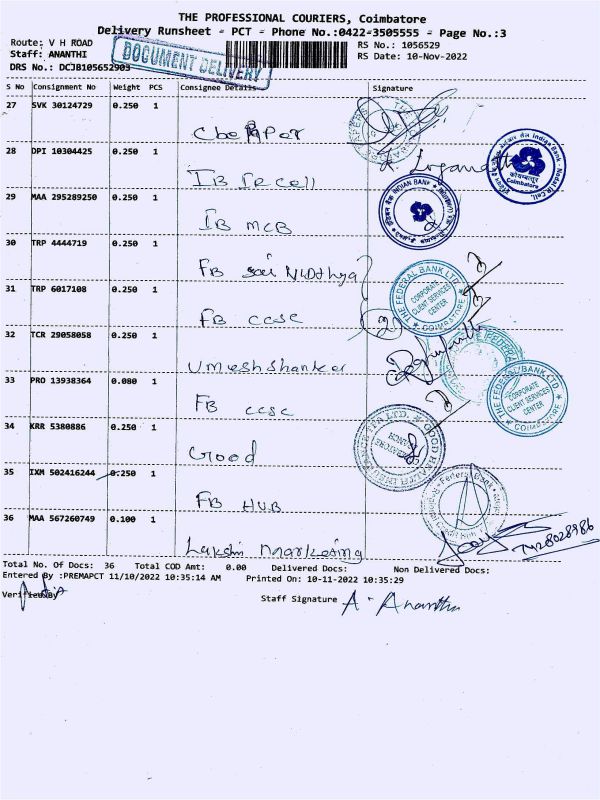 THE PROFESSIONAL COURIERS, Coimbatore
Delivery Runsheet - PCT - Phone No.:0422-3505555 - Page No.:3
Route: V H ROAD
RS No.: 1056529
Staff: ANANTHI
RS Date: 10-Nov-2022
DRS No.: DCJB105652903
DOCUMENT DELIVERY
S No Consignment No Weight PCS Consignee Details Signature
27 SVK 30124729 0.250 1
28 DPI 10304425 0.250 1
IB Fe cell
29 MAA 295289250 0.250 1
IB MCB
30 TRP 4444719 0.250 1
FB Sai Nidthya
31 TRP 6017108 0.250 1
FB CCSC
32 TCR 29058058 0.250 1
Umeshshanker
33 PRO 13938364 0.080 1
FB CCSC
34 KRR 5380886 0.250 1
Good
35 IXM 502416244 0.250 1
FB HUB
36 MAA 567260749 0.100 1
Lakshmi Marketing
INDIAN BANK
Coimbatore
THE FEDERAL BANK LTD.
CORPORATE
CLIENT SERVICES
CENTER
COIMBATORE
THE FEDERAL BANK LTD.
CORPORATE
CLIENT SERVICES
CENTER
COIMBATORE
Total No. Of Docs: 36 Total COD Amt: 0.00 Delivered Docs: Non Delivered Docs:
Entered By :PREMAPCT 11/10/2022 10:35:14 AM Printed On: 10-11-2022 10:35:29
Verified By
Staff Signature A. Ananthi